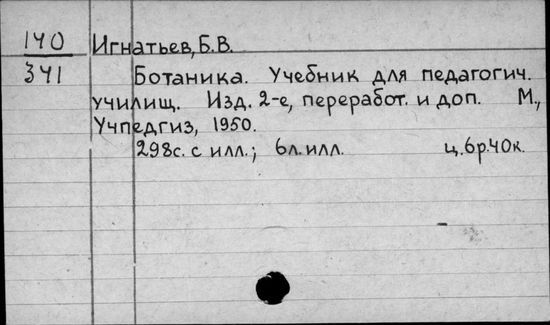 140 Игнатьев, Б.В.
341 Ботаника. Учебник для педагогич.
училищ. Изд. 2-е, переработ. и доп. М.,
Учпедгиз, 1950.
298с. с илл.; 6л. илл. ц. 6р. 40к.